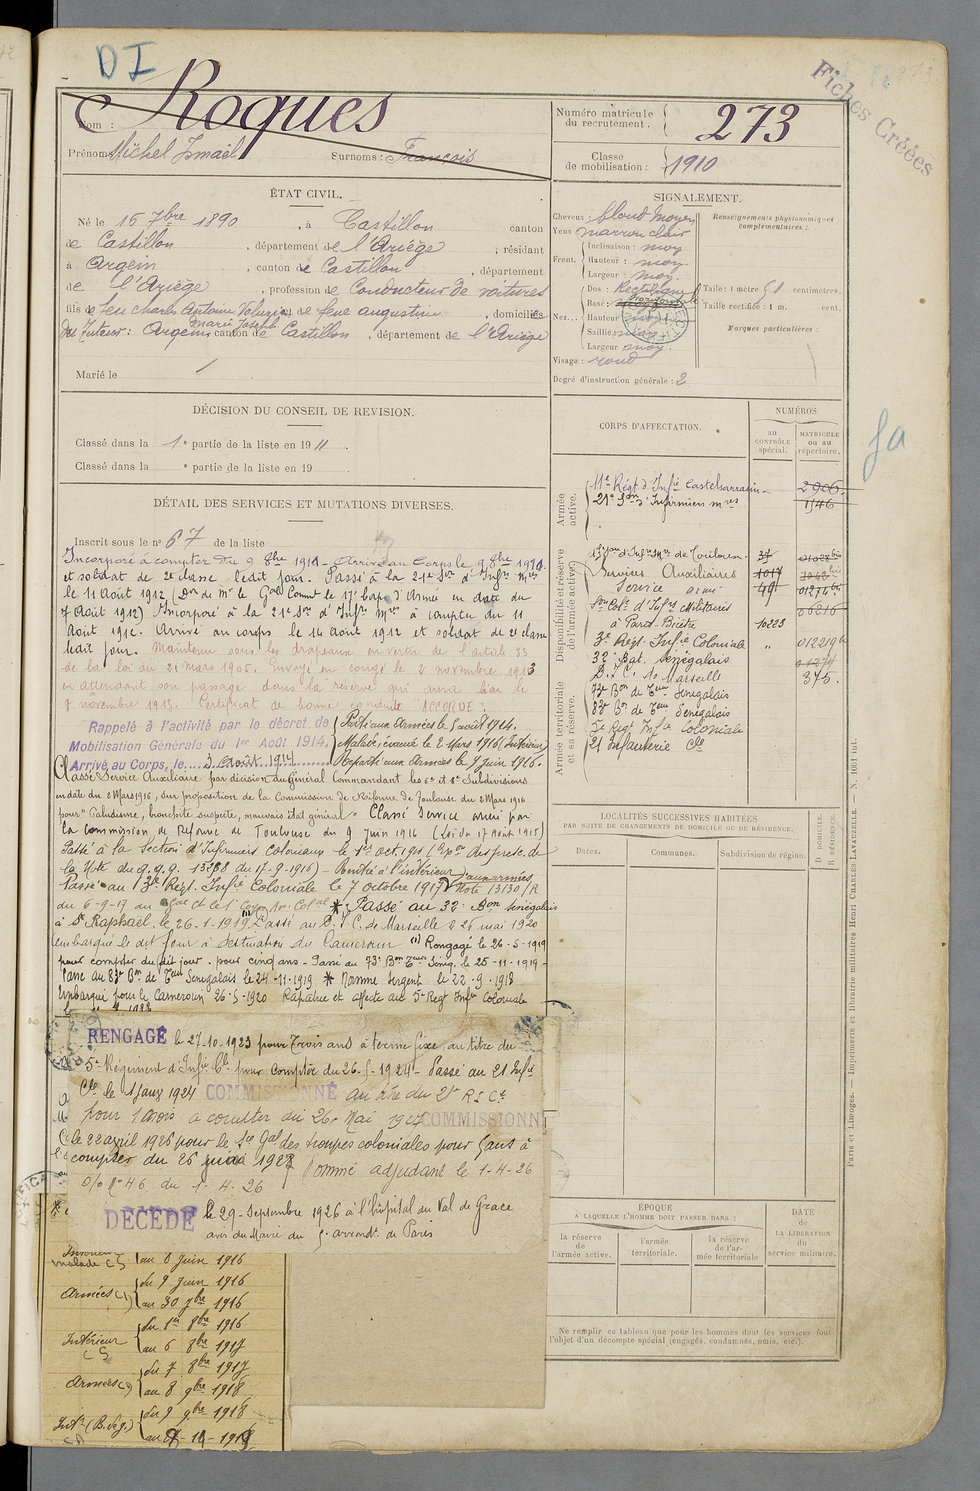 DI
Fiches Créées
Nom : Roques
Prénoms Michel Ismaël Surnoms : François
Numéro matricule du recrutement. 273
Classe de mobilisation : 1910
ÉTAT CIVIL.
Né le 15 7bre 1890, à Castillon canton
de Castillon, département de l'Ariège, résidant
à Argein, canton de Castillon, département
de l'Ariège, profession de Conducteur de voitures
fils de feu Charles Antoine et de feue Augustine, domiciliés
Marie Joseph
Tuteur : Argein canton de Castillon, département de l'Ariège
Marié le
SIGNALEMENT.
Cheveux : blond moyen
Yeux marron clair
Front. Inclinaison : moy
Hauteur : moy.
Largeur : moy.
Nez... Dos : Rectiligne
Base :
Hauteur moy
Saillie moy
Largeur moy.
Visage : rond
Degré d'instruction générale : 2
Renseignements physionomiques complémentaires :
Taille : 1 mètre 51 centimètres.
Taille rectifiée : 1 m. cent.
Marques particulières :
DÉCISION DU CONSEIL DE REVISION.
Classé dans la 1e partie de la liste en 1911.
Classé dans la e partie de la liste en 19
DÉTAIL DES SERVICES ET MUTATIONS DIVERSES.
Inscrit sous le no 67 de la liste
Incorporé à compter du 9 8bre 1911. Arrivé au Corps le 9 8bre 1911.
et soldat de 2e classe ledit jour. Passé à la 21e Son d'Infrs Mres
le 11 Août 1912 (Don de Mr le Gal Comt le 17e Corps d'Armée en date du
7 Août 1912) Incorporé à la 21e Son d'Infrs Mres à compter du 11
Août 1912. Arrivé au corps le 14 Août 1912 et soldat de 2e classe
ledit jour. Maintenu sous les drapeaux en vertu de l'article 33
de la loi du 21 Mars 1905. Envoyé en congé le 2 novembre 1913
en attendant son passage dans la réserve qui aura lieu le
8 novembre 1913. Certificat de bonne conduite "ACCORDÉ".
Rappelé à l'activité par le décret de Mobilisation Générale du 1er Août 1914,
Arrivé au Corps, le 3 Août 1914
Parti aux Armées le 5 août 1914.
Malade, évacué le 2 Mars 1916 (Intérieur)
Reparti aux Armées le 9 Juin 1916.
Classé Service Auxiliaire par décision du Général Commandant les 6e et 8e Subdivisions
en date du 2 Mars 1916, sur proposition de la Commission de Réforme de Toulouse du 2 Mars 1916
pour "Paludisme, bronchite suspecte, mauvais état général". Classé Service armé par
la Commission de Réforme de Toulouse du 9 Juin 1916 (Loi du 17 Août 1915)
Passé à la Section d'Infirmiers Coloniaux le 1er oct 1916
la Note du G.Q.G. 13238 du 17-9-1916) - Rentré à l'intérieur
Passé au 3e Régt. Infie Coloniale le 7 octobre 1917 aux armées Note 13130/R
du 6-9-17 * Passé au 32e Bon Sénégalais
à St Raphaël le 26.1.1919. Passé au D.I.C. de Marseille le 25 mai 1920
embarqué le dit jour à destination du Cameroun (1) Rengagé le 26-5-1919
pour compter du dit jour pour cinq ans - Passé au 73e Bon Tirs Sénég. le 25-11-1919 -
Passé au 83e Bn de Teurs Sénégalais le 24-11-1919 * Nommé Sergent le 22.9.1918
Embarqué pour le Cameroun 26-5-1920 Rapatrié et affecté au 5e Régt Infie Coloniale
RENGAGÉ le 27-10-1923 pour Trois ans à terme fixe, au titre du
5e Régiment d'Infie Cle pour compter du 26-5-1924 - Passé au 21 Infie
Cle le 1 Janv 1924 COMMISSIONNÉ au titre du 21e R.I.C.
pour 1 mois à compter du 26 Mai 1927 COMMISSIONN
le 22 avril 1926 pour le Sce Gal des troupes coloniales pour 5 ans à
compter du 26 juin 1927 Nommé adjudant le 1-4-26
O/o No 46 du 1-4-26
DÉCÉDÉ le 29-Septembre 1926 à l'hôpital du Val de Grace
avis du Maire du 5e arrondt. de Paris
Intérieur malade CS au 8 Juin 1916
Armées du 9 Juin 1916
au 30 7bre 1916
Intérieur CS du 1er 8bre 1916
au 6 8bre 1917
Armées du 7 8bre 1917
au 8 9bre 1918
Intr du 9 9bre 1918
CORPS D'AFFECTATION.
NUMÉROS
au CONTRÔLE spécial.
MATRICULE ou au répertoire.
Armée active.
11e Régt d'Infie Castelsarrasin 2906
21e Son d'Infirmiers mres 1546
Disponibilité et réserve de l'armée active.
de Toulouse 37
Services Auxiliaires 1017
Service armé
Son Cole d'Infres Militaires
à Paris-Bicêtre 10223
3e Régt Infie Coloniale "
32e Bat. Sénégalais
D.I.C. No Marseille 375.
73e Bon de Teurs Sénégalais
83e Bn de Teurs Sénégalais
5e Régt Infie Coloniale
21 Infanterie Cle
Armée territoriale et sa réserve.
LOCALITÉS SUCCESSIVES HABITÉES
PAR SUITE DE CHANGEMENTS DE DOMICILE OU DE RÉSIDENCE.
Dates. Communes. Subdivision de région. D DOMICILE. R RÉSIDENCE.
ÉPOQUE
A LAQUELLE L'HOMME DOIT PASSER DANS :
la réserve de l'armée active. l'armée territoriale. la réserve de l'armée territoriale
DATE de LA LIBÉRATION du service militaire.
Ne remplir ce tableau que pour les hommes dont les services font
l'objet d'un décompte spécial (engagés, condamnés, omis, etc.).
Paris et Limoges. — Imprimerie et librairie militaires Henri CHARLES-LAVAUZELLE. — N. 1001 int.